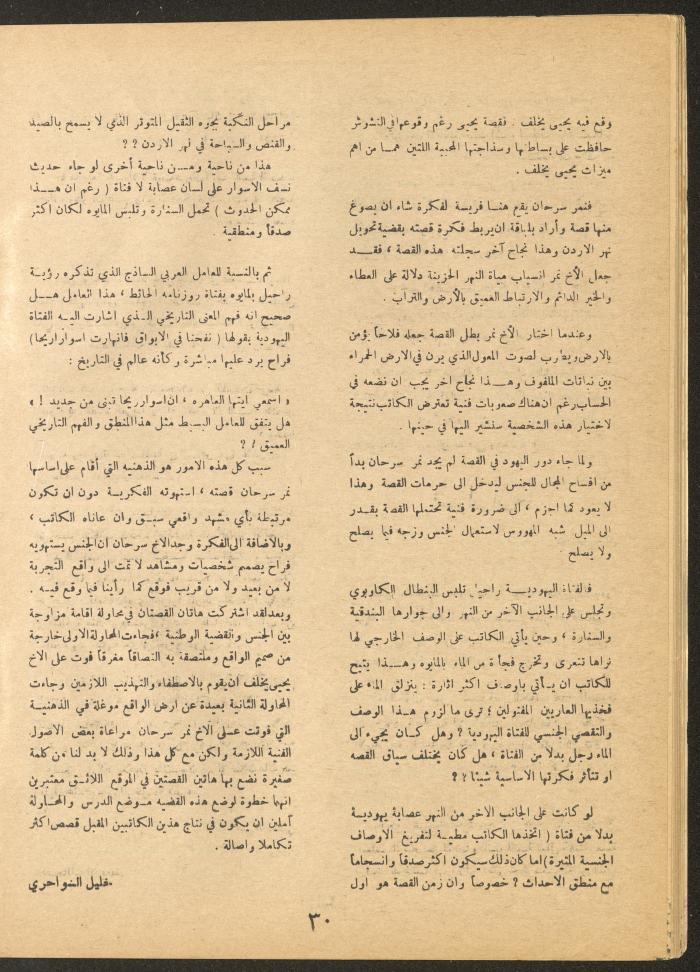 وقع فيه يحيى يخلف . فقصة يحيى رغم وقوعها في التشوش
حافظت على بساطتها وسذاجتها المحببة اللتين همــا من اهم
ميزات يحيى يخلف .
فنمر سرحان يقع هنــا فريسة لفكرة شاء ان يصوغ
منها قصة وأراد بلباقة ان يربط فكرة قصته بقضية تحويل
نهر الاردن وهذا نجاح آخر سجلته هذه القصة ، فقــد
جعل الأخ نمر انسياب مياة النهر الحزينة دلالة على العطاء
والخير الدائم والارتباط العميق بالأرض والتراب .
وعندما اختار الأخ نمر بطل القصة جعله فلاحاً يؤمن
بالارض ويطرب لصوت المعول الذي يرن في الارض الحمراء
بين نباتات الملفوف وهــذا نجاح اخر يجب ان نضعه في
الحساب رغم ان هناك صعوبات فنية تعترض الكاتب نتيجة
لاختيار هذه الشخصية سنشير اليها في حينها .
ولما جاء دور اليهود في القصة لم يجد نمر سرحان بداً
من افساح المجال للجنس ليدخل الى حرمات القصة وهذا
لا يعود كما اجزم ، الى ضرورة فنية تحتملها القصة بقــدر
الى الميل شبه المهووس لاستعمال الجنس وزجه فيما يصلح
ولا يصلح .
فالفتاة اليهوديــة راحيل تلبس البنطال الكاوبوي
وتجلس على الجانب الآخر من النهر والى جوارها البندقية
والسنارة ، وحين يأتي الكاتب على الوصف الخارجي لها
نراها تتعرى وتخرج فجأة من الماء بالمايوه وهــذا يتيح
للكاتب ان يــأتي باوصاف اكثر اثارة : ينزلق الماء على
فخذيها العاريين المفتولين ؛ ترى ما لزوم هــذا الوصف
والتقصي الجنسي للفتاة اليهودية ؟ وهل كــان يجيء الى
الماء رجل بدلا من الفتاة ، هل كان يختلف سياق القصه
او تتأثر فكرتها الاساسية شيئا ؟ ؟
لو كانت على الجانب الاخر من النهر عصابة يهوديــة
بدلا من فتاة ( اتخذها الكاتب مطيــة لتفريغ الاوصاف
الجنسية المثيرة ) اما كان ذلك سيكون اكثر صدقاً وانسجاماً
مع منطق الاحداث ؟ خصوصاً وان زمن القصة هو اول
مراحل النكبة بجوه الثقيل المتوتر الذي لا يسمح بالصيد
والقنص والسياحة في نهر الاردن ؟ ؟
هذا من ناحية ومــن ناحية أخرى لو جاء حديث
نسف الاسوار على لسان عصابة لا فتاة ( رغم ان هــذا
ممكن الحدوث ) تحمل السنارة وتلبس المايوه لكان اكثر
صدقاً ومنطقية .
ثم بالنسبة للعامل العربي الساذج الذي تذكره رؤيــة
راحيل بالمايوه بفتاة روزنامه الحائط ، هذا العامل هــل
صحيح انه فهم المعنى التاريخي الــذي اشارت اليــه الفتاة
اليهودية بقولها ( نفخنا في الابواق فانهارت اسوار اريحا )
فراح يرد عليها مباشرة وكأنه عالم في التاريخ :
« اسمعي ايتها العاهره ، ان اسوار ريحا تبنى من جديد ! »
هل يتفق للعامل البسيط مثل هذا المنطق والفهم التاريخي
العميق ! ?
سبب كل هذه الامور هو الذهنيه التي أقام على اساسها
نمر سرحان قصته ، استهوته الفكريــة دون ان تكون
مرتبطة بأي مشهد واقعي سبــق وان عاناه الكاتب ،
وبالاضافة الى الفكرة وجد الاخ سرحان ان الجنس يستهويه
فراح يصمم شخصيات ومشاهد لا تمت الى واقع التجربة
لا من بعيد ولا من قريب فوقع كما رأينا فيما وقع فيــه .
وبعد لقد اشتركت هاتان القصتان في محاولة اقامة مزاوجة
بين الجنس والقضية الوطنية ، فجاءت المحاولة الاولى خارجة
من صميم الواقع وملتصقة به التصاقاً مغرقاً فوت على الاخ
يحيى يخلف ان يقوم بالاصطفاء والتهذيب اللازمين وجاءت
المحاولة الثانية بعيدة عن ارض الواقع موغلة في الذهنيــة
التي فوتت عــلى الاخ نمر سرحان مراعاة بعض الاصول
الفنية اللازمة ولكن مع كل هذا وذلك لا بد لنا من كلمة
صغيرة نضع بها هاتين القصتين في الموقع اللائــق معتبرين
انهما خطوة لوضع هذه القضيه مــوضع الدرس والمحــاولة
آملين ان يكون في نتاج هذين الكاتبين المقبل قصص اكثر
تكاملا واصالة .
خليل السواحري
٣٠